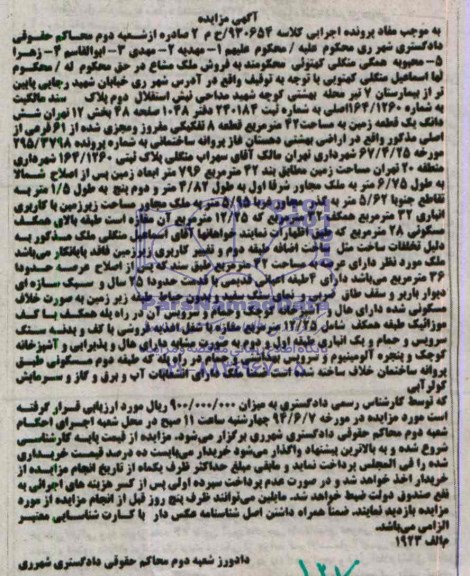 آگهی مزایده
به موجب مفاد پرونده اجرایی کلاسه ۹۳۰۶۵۴/ح م ۲ صادره از شعبه دوم محاکم حقوقی
دادگستری شهر ری محکوم علیه / محکوم علیهم ۱- مهدیه ۲- مهدی ۳- ابوالقاسم ۴- زهرا
۵- محبوبه همگی متکلی کهنوئی محکومند به فروش ملک مشاع در حق محکوم له / محکوم
لها اسماعیل متکلی کهنویی با توجه به توقیف واقع در آدرس شهر ری خیابان شهید رجایی پایین
تر از بیمارستان ۷ تیر محله بهشتی کوچه شهید مداحی نبش استقلال دوم پلاک سند مالکیت
به شماره ۱۶۴/۱۲۶۰ اصلی به شماره ثبت ۲۳۰۱۸۴ دفتر ۱۰۴۸ صفحه ۴۸ بخش ۱۲ تهران شش
دانگ یک قطعه زمین به مساحت ۴۲ مترمربع قطعه ۸ تفکیکی مفروز ومجزی شده از ۶۱ فرعی از
اصلی مذکور واقع در اراضی بهشتی دهستان غار پروانه ساختمانی به شماره پرونده ۲۹۵/۳۷۹۸
مورخه ۶۷/۴/۲۵ شهرداری تهران مالک آقای سهراب متکلی پلاک ثبتی ۱۶۴/۱۲۶۰ شهرداری
منطقه ۲۰ تهران مساحت زمین مطابق بند ۴۲ مترمربع ۷۹۶ متر ابعاد زمین پس از اصلاح شمالا
به طول ۶/۷۵ متر به ملک مجاور شرقا اول به طول ۴/۸۲ متر و دوم پنج به طول ۱/۵ متر به
تقاطع جنوبا ۵/۶۲ متر به ملک مجاور غربا ۵/۹۵ متر به ملک مجاور مساحت زیرزمین با کاربری
انباری ۳۲ مترمربع همکف ۴۰ مترمربع که ۱۲/۲۵ مترمربع آن مغازه است طبقه بالای همکف
مسکونی ۲۸ مترمربع که طبق اظهارات نماینده خواهانها آقای اسماعیل متکلی ملک مذکور به
دلیل تخلفات ساخت مثل ساخت اضافه طبقه دوم و تغییر کاربری زیرزمین فاقد پایانکار می‌باشد
ملک مورد نظر دارای عرصه به مساحت ۴۲ مترمربع طبق سند که پس از اصلاح عرصه حدودا
۳۶ مترمربع می‌باشد دارای ۴ طبقه اعیانی قدیمی با قدمت حدودا ۲۵ سال و سبک سازه ای
دیوار باربر و سقف طاق ضربی و نمای سنگ سفید و بدون حیاط طبقه زیر زمین به صورت خلاف
مسکونی شده دارای هال و آشپزخانه کوچک و حمام و سرویس آن در راه پله همکف با کف
موزائیک طبقه همکف شامل ۱۲/۲۵ مترمربع مغازه با شغل اغذیه فروشی با کف و بدنه سنگ
سرویس و حمام و یک انباری طبقه اول و دوم به صورت مشابه دارای هال و پذیرایی و آشپزخانه
کوچک و پنجره آلومینیوم و سرویس بهداشتی و حمام در راه پله که طبقه دوم مسکونی طبق
پروانه ساختمان خلاف ساخته شده است ضمنا ملک دارای انشعابات آب و برق و گاز و سرمایش
کولر آبی
که توسط کارشناس رسمی دادگستری به میزان ۹۰۰/۰۰۰/۰۰۰ ریال مورد ارزیابی قرار گرفته
است مورد مزایده در مورخه ۹۴/۶/۷ چهارشنبه ساعت ۱۱ صبح در محل شعبه اجرای احکام
شعبه دوم محاکم حقوقی دادگستری شهرری برگزار می‌شود. مزایده از قیمت پایه کارشناسی
شروع شده و به بالاترین پیشنهاد واگذار می‌شود خریدار می‌بایست ده درصد قیمت خریداری
شده را فی المجلس پرداخت نماید و مابقی مبلغ حداکثر ظرف یکماه از تاریخ انجام مزایده از
خریدار اخذ خواهد شد و در صورت عدم پرداخت سپرده اولی پس از کسر هزینه های اجرائی به
نفع صندوق دولت ضبط خواهد شد. مایلین می‌توانند ظرف پنج روز قبل از انجام مزایده از مورد
مزایده بازدید نمایند. ضمنا همراه داشتن اصل شناسنامه عکس دار یا کارت شناسایی معتبر
الزامی می‌باشد.
م الف ۱۹۲۳
دادورز شعبه دوم محاکم حقوقی دادگستری شهرری